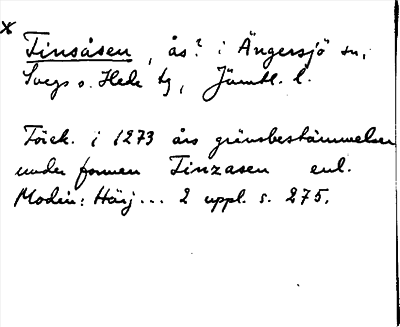 x
Tinsåsen, ås? i Ängersjö sn,
Svegs o. Hede tg, Jämtl. l.
Förek. i 1273 års gränsbestämmelser
under formen Tinzasen enl.
Modin: Härj... 2 uppl. s. 275.